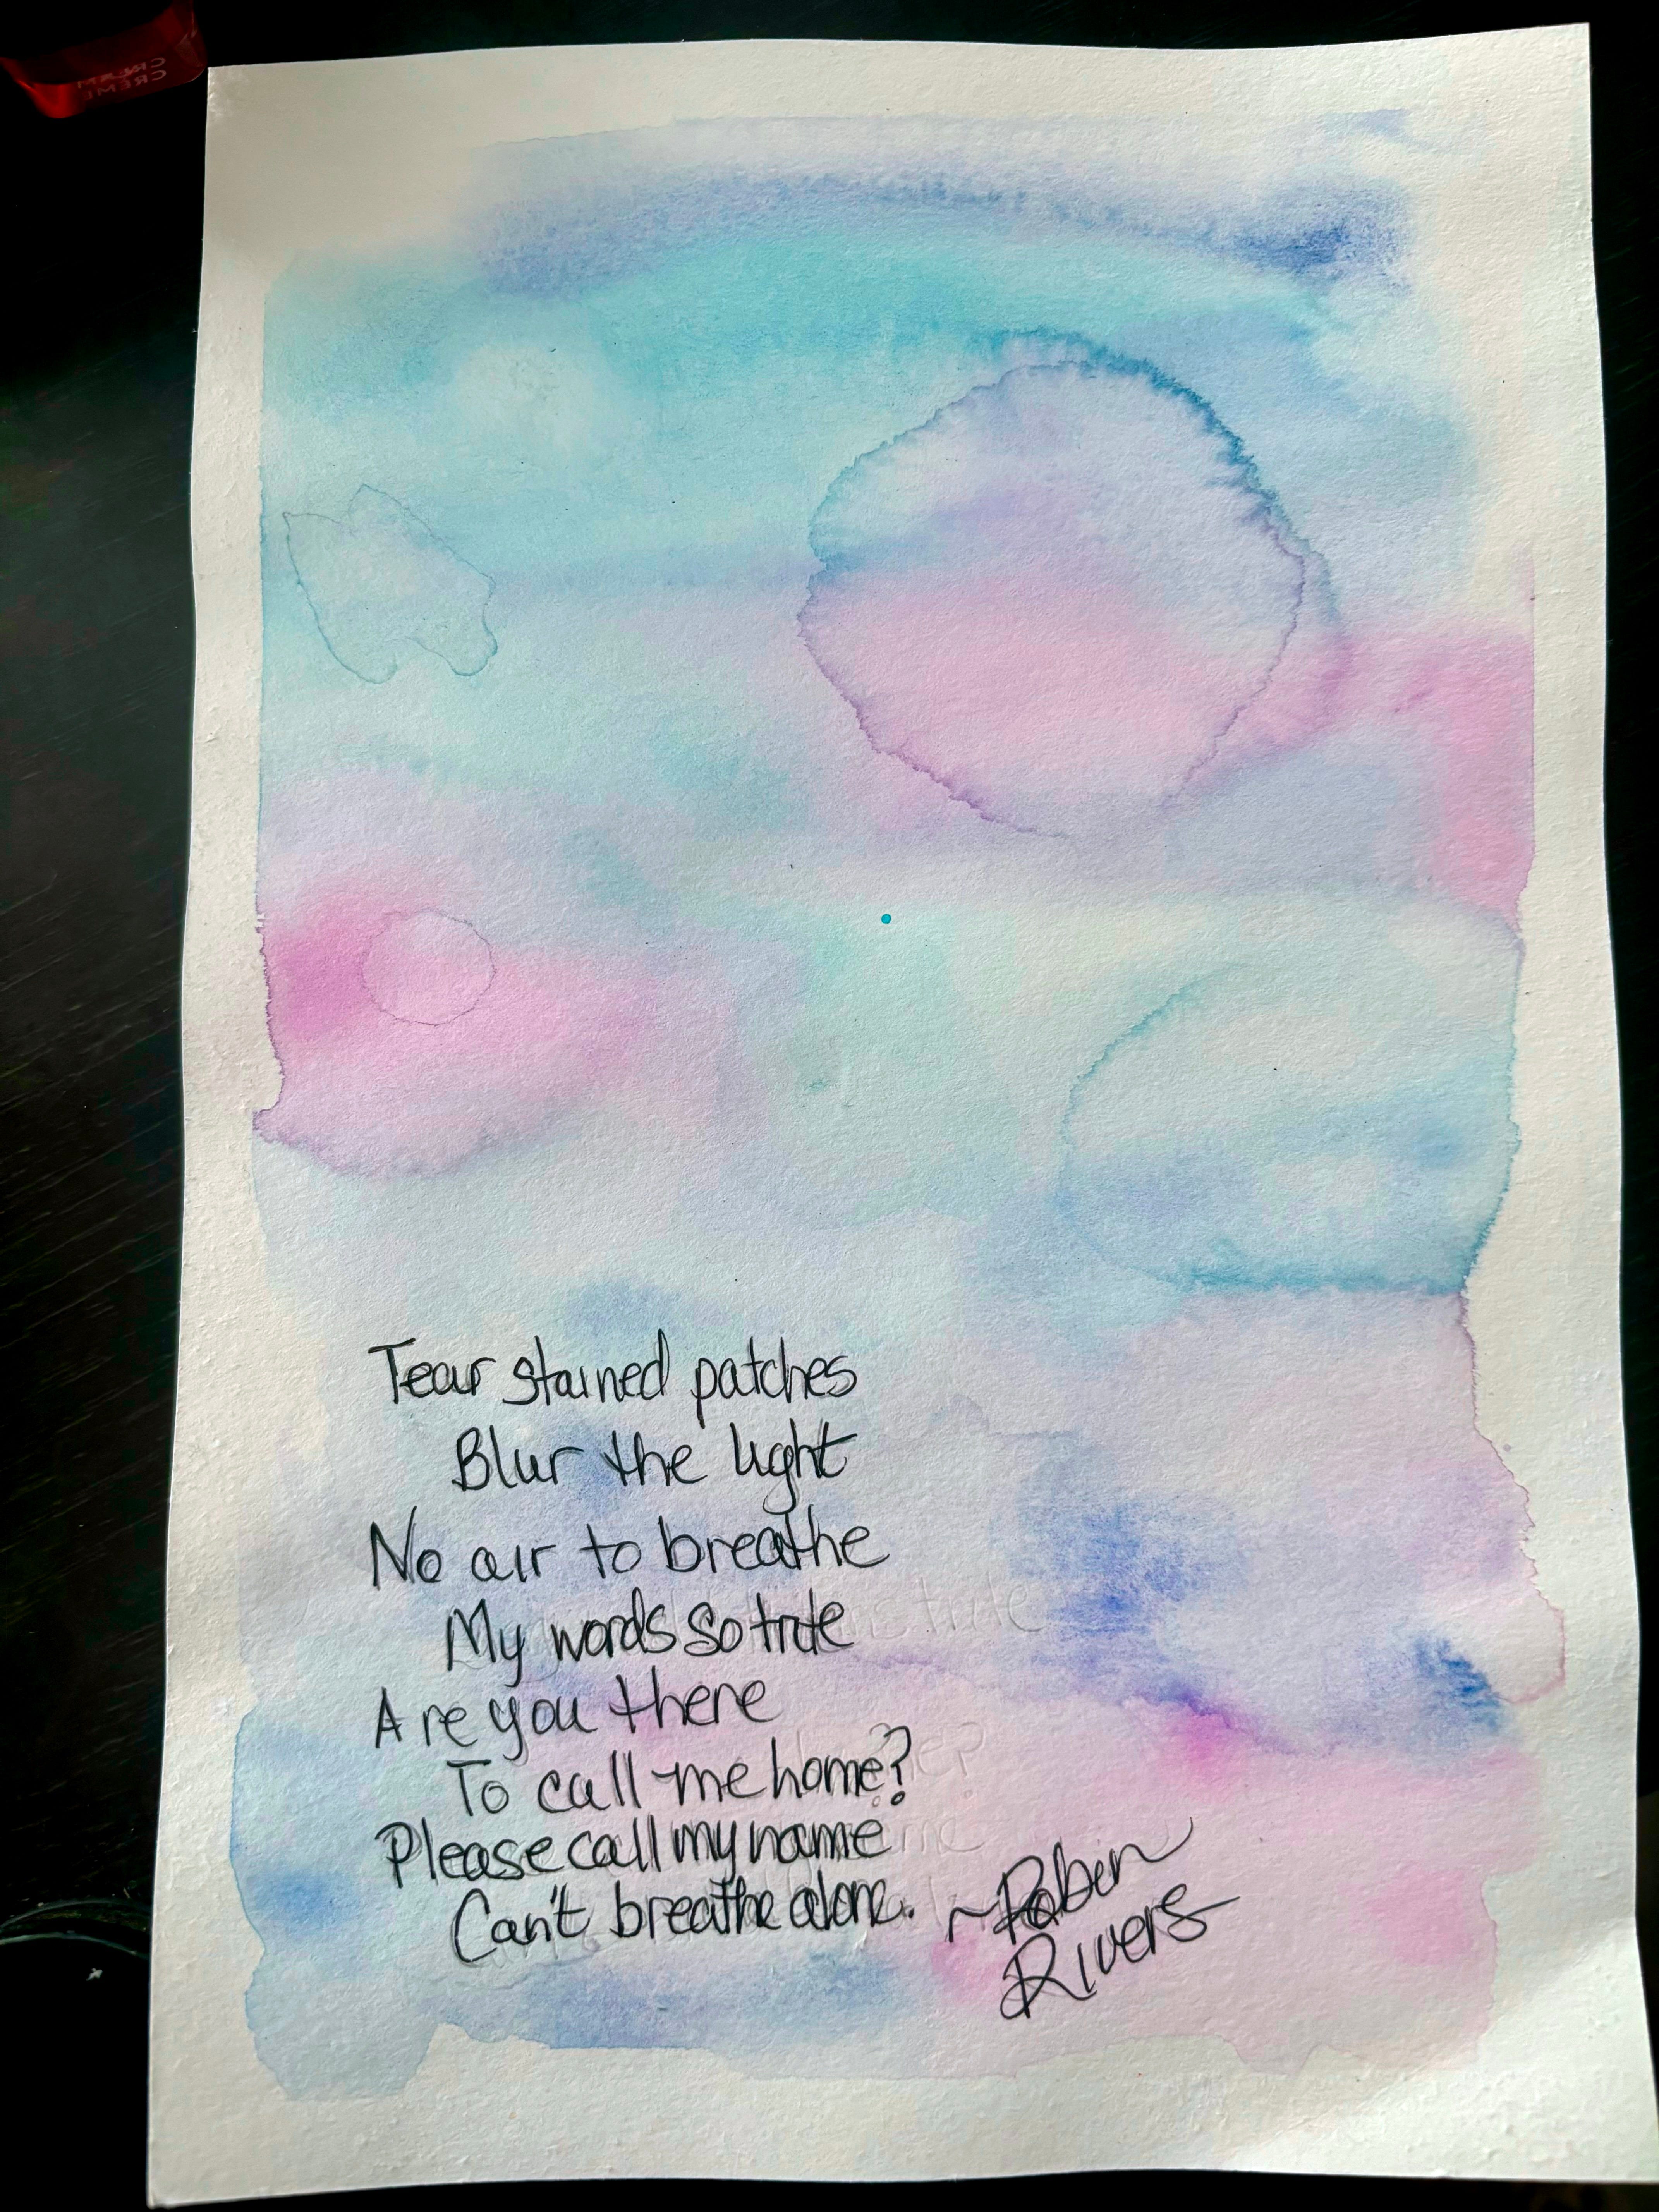 CREAM
CREME
Tear stained patches
Blur the light
No air to breathe
My words so true
Are you there
To call me home?
Please call my name
Can't breathe alone.
~Robin
Rivers